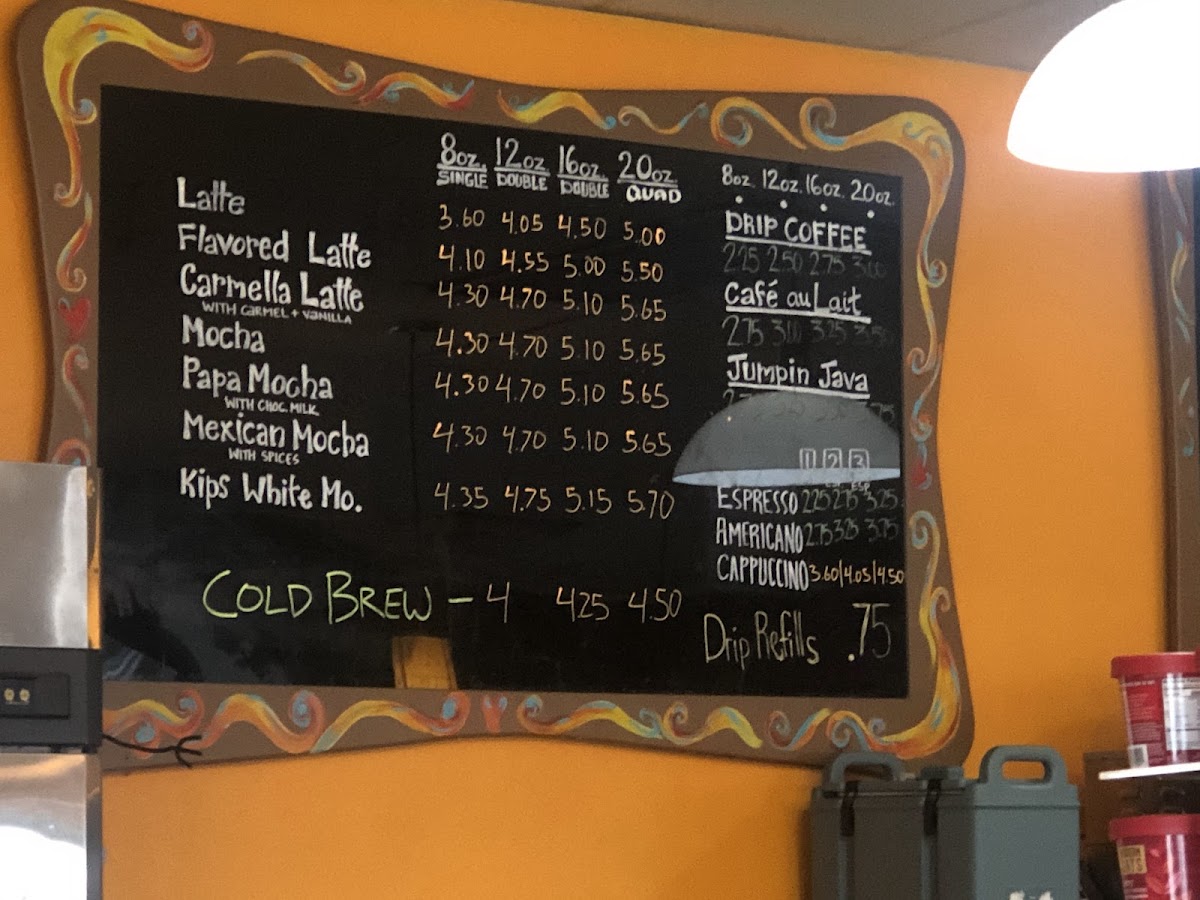 8oz. 12oz 16oz. 20oz
SINGLE DOUBLE DOUBLE QUAD
Latte 3.60 4.05 4.50 5.00
Flavored Latte 4.10 4.55 5.00 5.50
Carmella Latte 4.30 4.70 5.10 5.65
WITH CARMEL + VANILLA
Mocha 4.30 4.70 5.10 5.65
Papa Mocha 4.30 4.70 5.10 5.65
WITH CHOC. MILK
Mexican Mocha 4.30 4.70 5.10 5.65
WITH SPICES
Kips White Mo. 4.35 4.75 5.15 5.70
COLD BREW - 4 4.25 4.50
8oz. 12oz. 16oz. 20oz.
DRIP COFFEE
2.25 2.50 2.75 3.00
Café au Lait
2.75 3.00 3.25 3.50
Jumpin Java
1 2 3
ESPRESSO 2.25 2.75 3.25
AMERICANO 2.75 3.25 3.75
CAPPUCCINO 3.60/4.05/4.50
Drip Refills .75